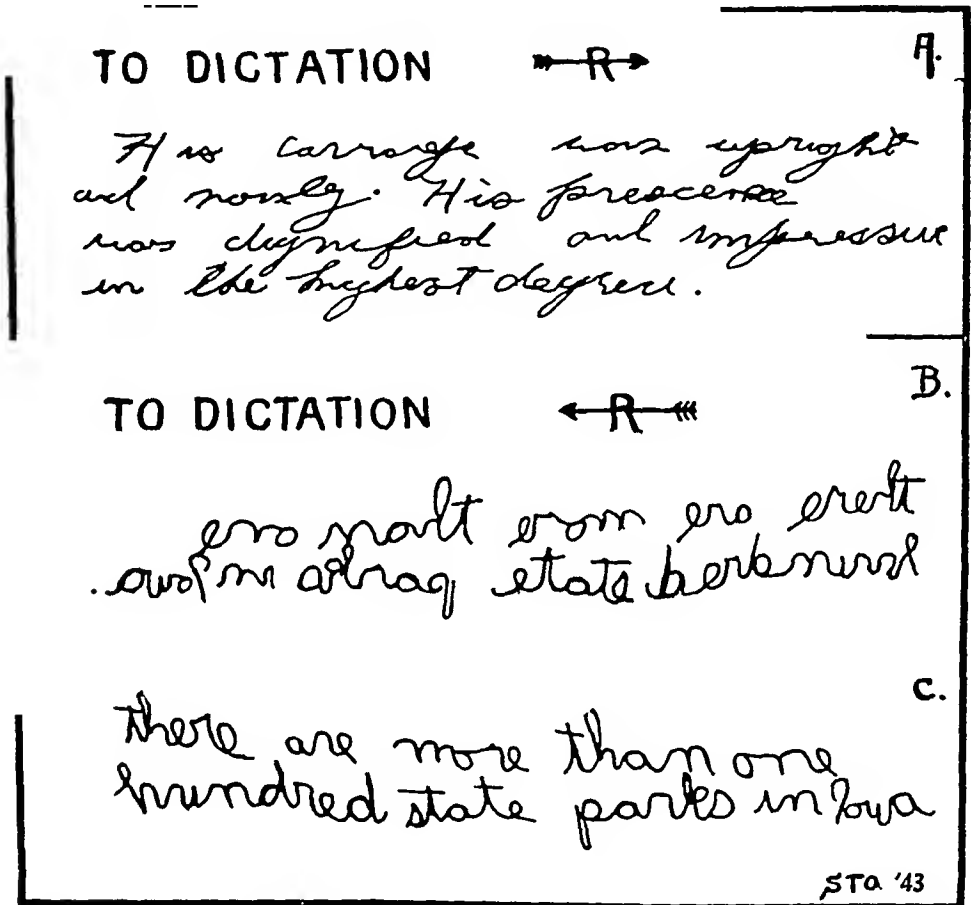 TO DICTATION R A.
His carriage was upright
and His presence
was dignified and impressive
in the highest degree.
TO DICTATION R B.
there are more than one
hundred state parks in Iowa.
C.
there are more than one
hundred state parks in Iowa
STA '43